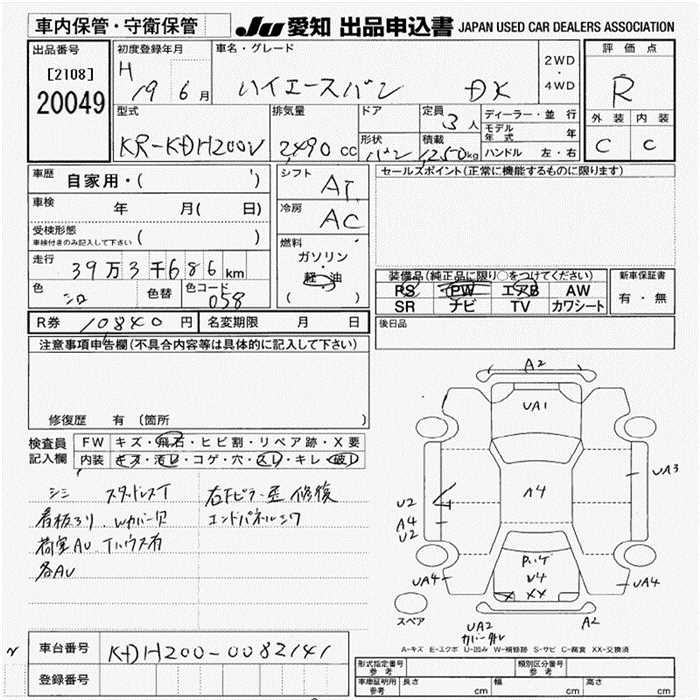 車内保管・守衛保管
JU 愛知 出品申込書 JAPAN USED CAR DEALERS ASSOCIATION
出品番号
[2108]
20049
初度登録年月
H 19 6 月
車名・グレード
ハイエースバン DX
2WD
・
4WD
評価点
R
外装 内装
C C
型式
KR-KDH200V
排気量
2,490 cc
ドア
形状
バン
定員
3 人
積載
1,250 kg
ディーラー・並行
モデル年式 年
ハンドル 左・右
車歴
自家用・( )
車検
年 月( 日)
受検形態
車検付きのみ記入して下さい ( )
走行
39万3千686km
色
シロ
色替
色コード
058
シフト
AT
冷房
AC
燃料
ガソリン
・
軽・油
( )
セールスポイント(正常に機能するものに限ります)
装備品(純正品に限り○をつけてください)
PS PW エアB AW
SR ナビ TV カワシート
新車保証書
有・無
後日品
R券 10840 円
名変期限 月 日
注意事項申告欄(不具合内容等は具体的に記入して下さい)
修復歴 有(箇所 )
検査員
記入欄
FW キズ・飛石・ヒビ割・リペア跡・X要
内装 キズ・汚レ・コゲ・穴・スレ・キレ・破レ
シミ スタッドレスT 右Fピラー歪 修復
看板アリ Wカバー欠 エンドパネルシワ
荷室AU Tハウス有
各AU
A2
UA1
A4
UA3
U2
A4
U2
UA4
UA4
U4
XX
UA2
A2
スペア
A-キズ E-エクボ U-凹み W-補修跡 S-サビ C-腐食 XX-交換済
車台番号
KDH200-0082141
登録番号
形式指定番号
参考
類別区分番号
参考
車庫証明用
参考
長さ cm 幅 cm 高さ cm